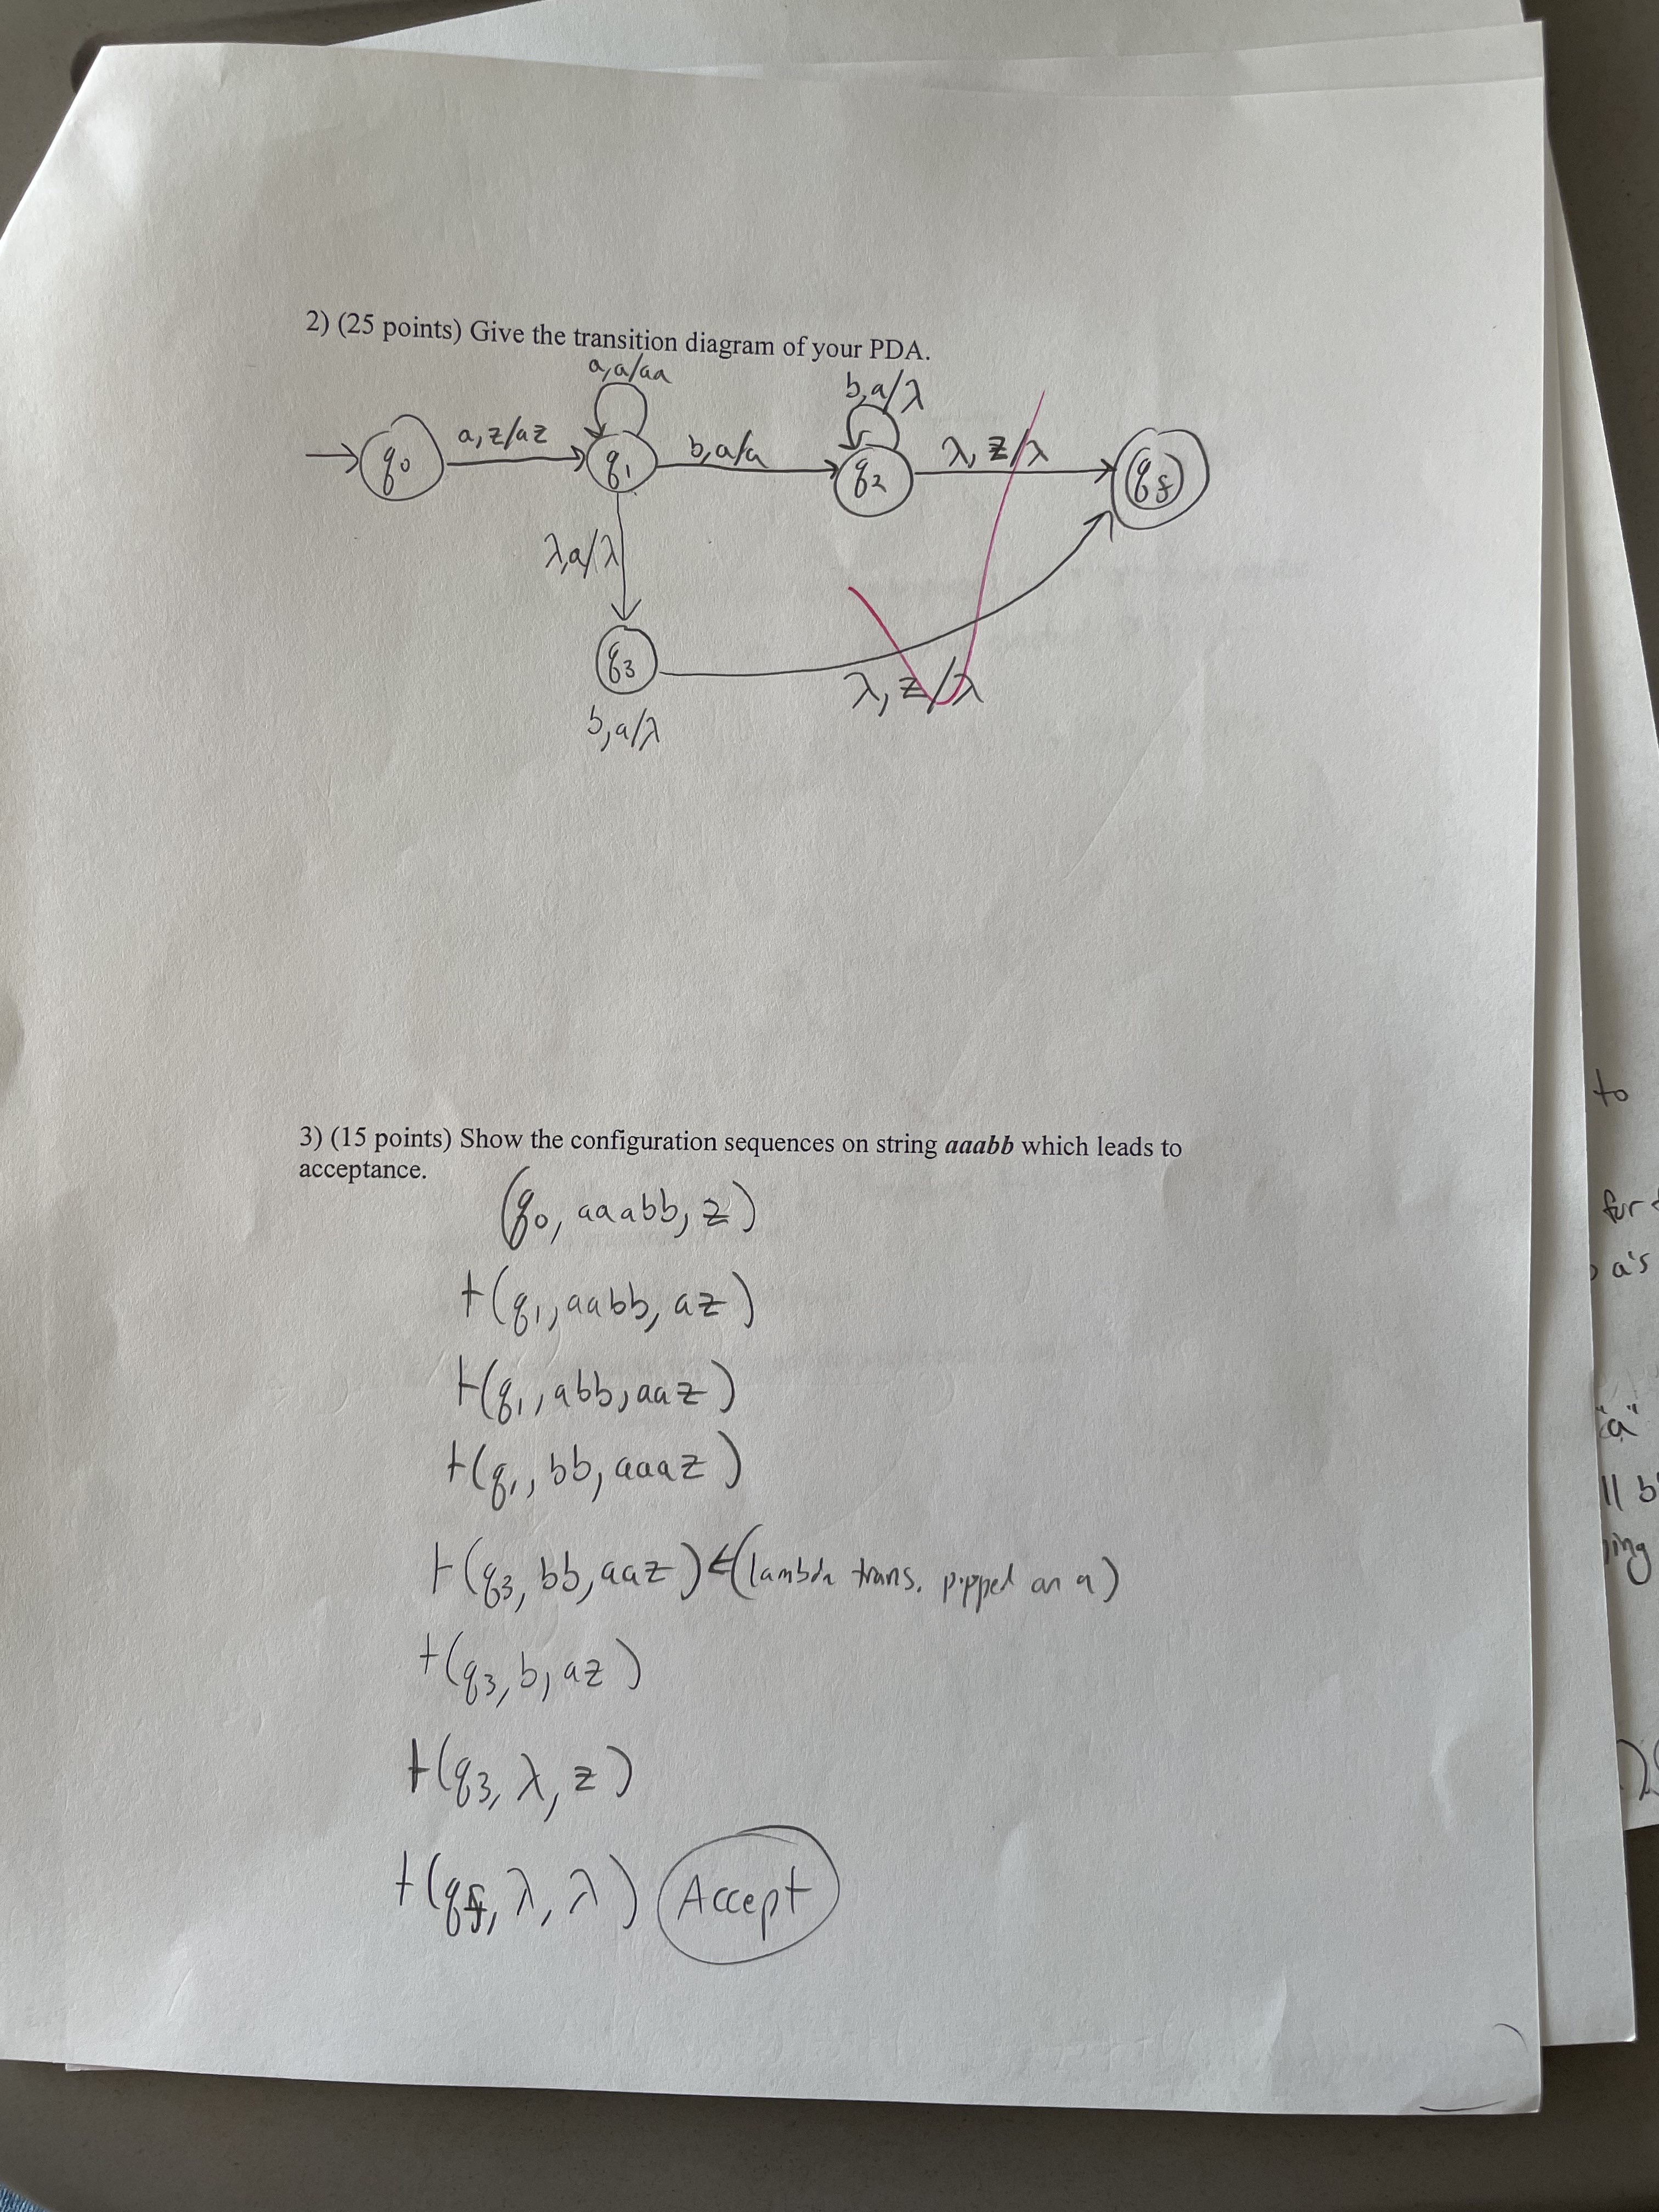 2) (25 points) Give the transition diagram of your PDA.
a,a/aa
b,a/λ
a,z/az
b,a/a
λ, z/λ
q0
q1
q2
qf
λ,a/λ
q3
λ, z/λ
b,a/λ
3) (15 points) Show the configuration sequences on string aaabb which leads to
acceptance.
(q0, aaabb, z)
⊢(q1, aabb, az)
⊢(q1, abb, aaz)
⊢(q1, bb, aaaz)
⊢(q3, bb, aaz) ←(lambda trans. popped an a)
⊢(q3, b, az)
⊢(q3, λ, z)
⊢(qf, λ, λ) Accept
to
for
a's
"a"
ll b
ing